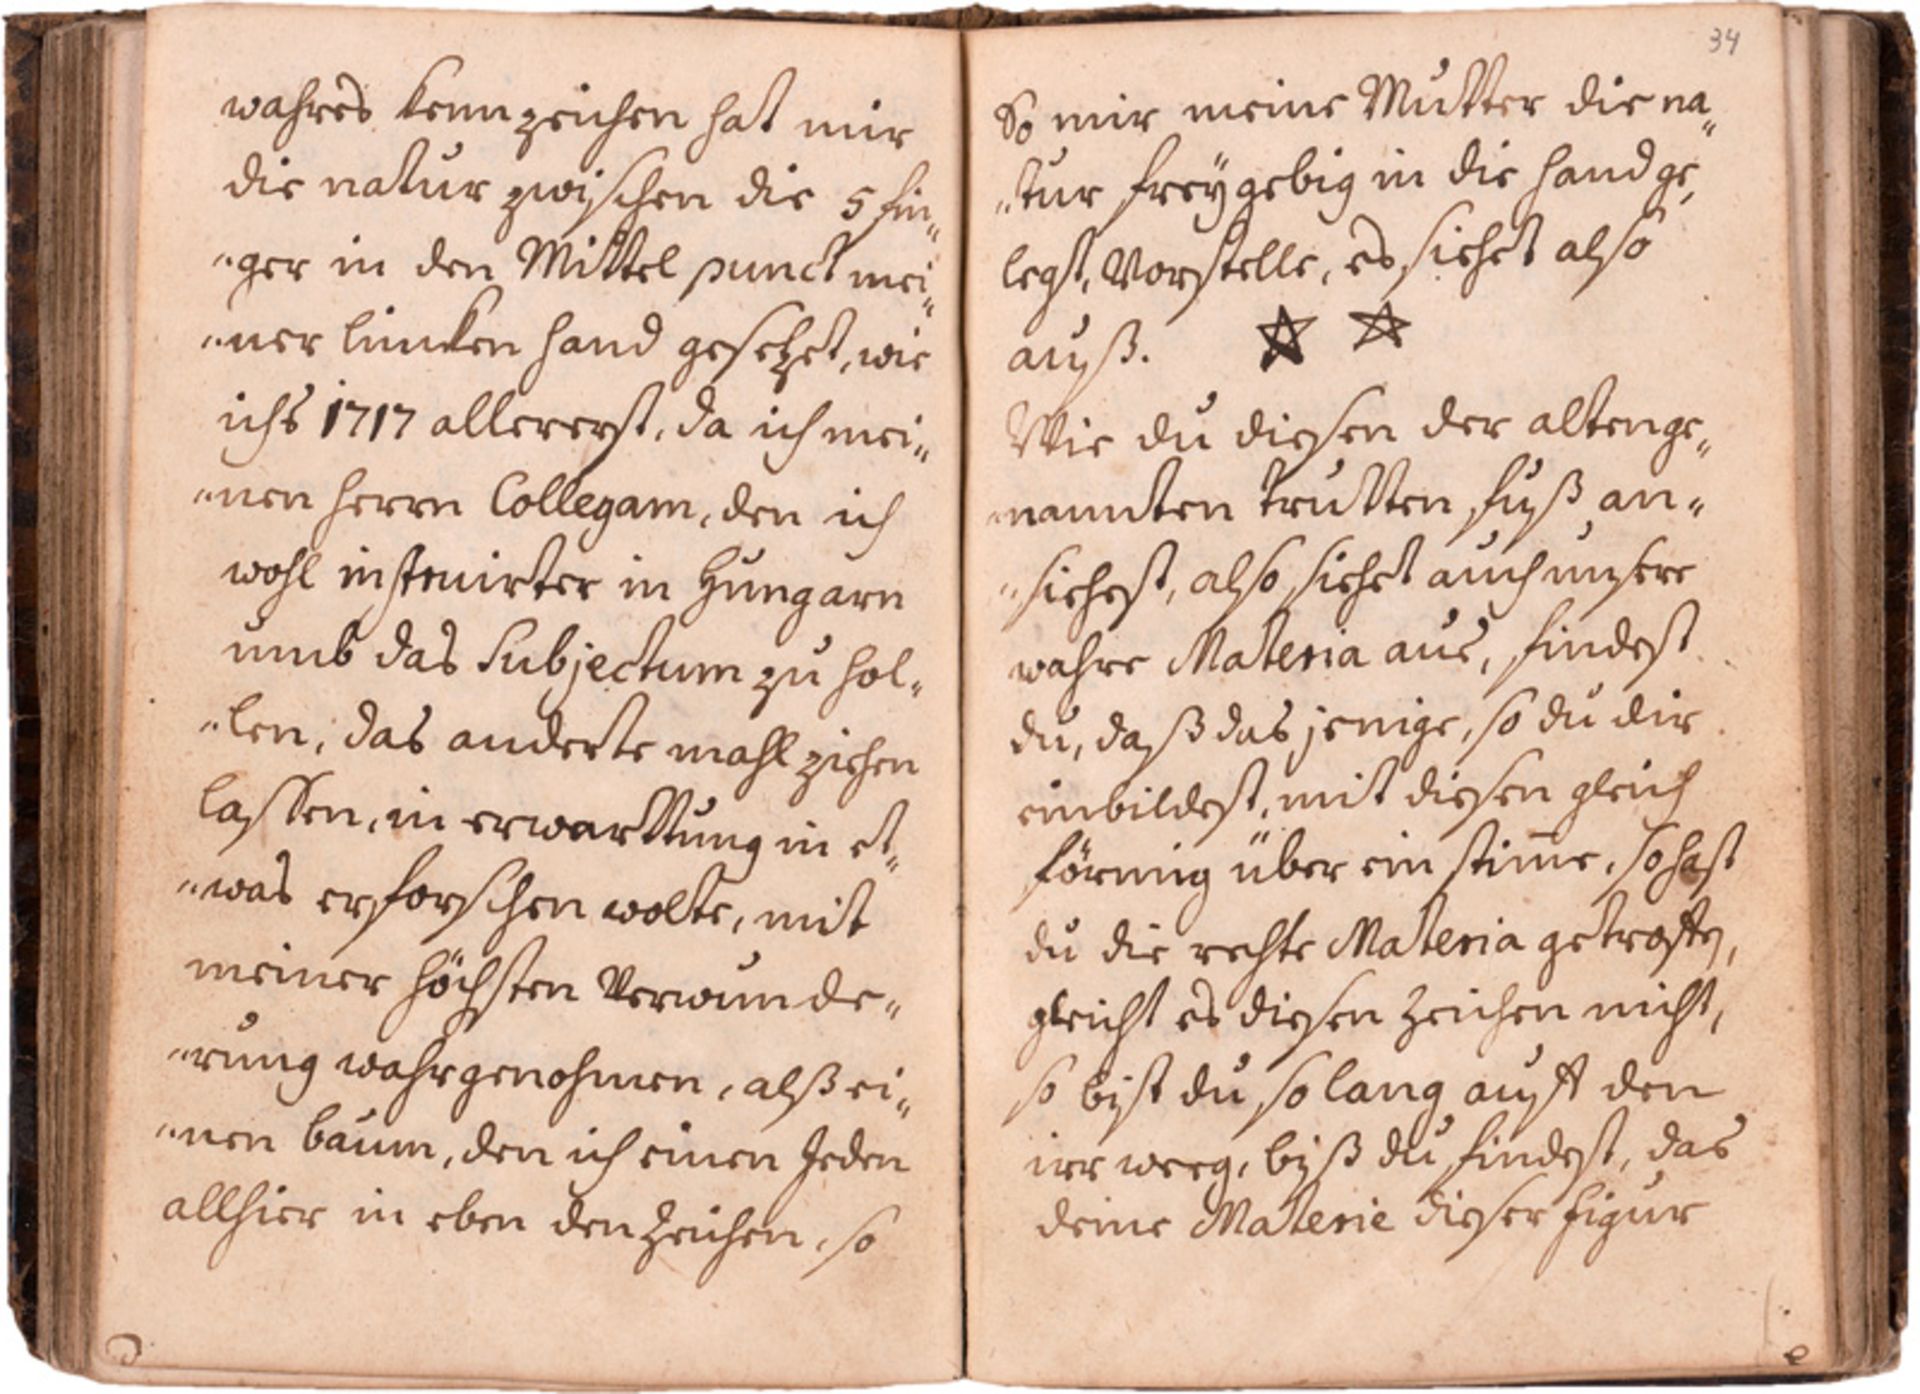 wahres kennzeichen hat mir
die natur zwischen die 5 fin„
„ger in den Mittel punct mei„
„ner lincken hand gesetzet, wie
ichs 1717 allererst, da ich mei„
„nen herrn Collegam, den ich
wohl instruirter in Hungarn
umb das Subjectum zu hol„
„len, das anderte mahl ziehen
lassen, in erwarttung in et„
„was erforschen wolte, mit
meiner höchsten Verwunde„
„rung wahrgenohmen, alß ei„
„nen baum, den ich einen Jeden
allhier in eben den Zeichen, so
34
So mir meine Mutter die na„
„tur freÿgebig in die hand ge„
legt, Vorstelle, es siehet also
auß.
Wie du diesen der alten ge„
nandten trutten fuß an„
„siehest, also siehet auch unsere
wahre Materia aus, findest
du, daß das jenige, so du dir
einbildest, mit diesen gleich
förmig über ein stim̅e, so hast
du die rechte Materia getroffen,
gleicht es diesen Zeichen nicht,
so bist du so lang auff den
irr weeg, biß du findest, das
deine Materie dieser figur